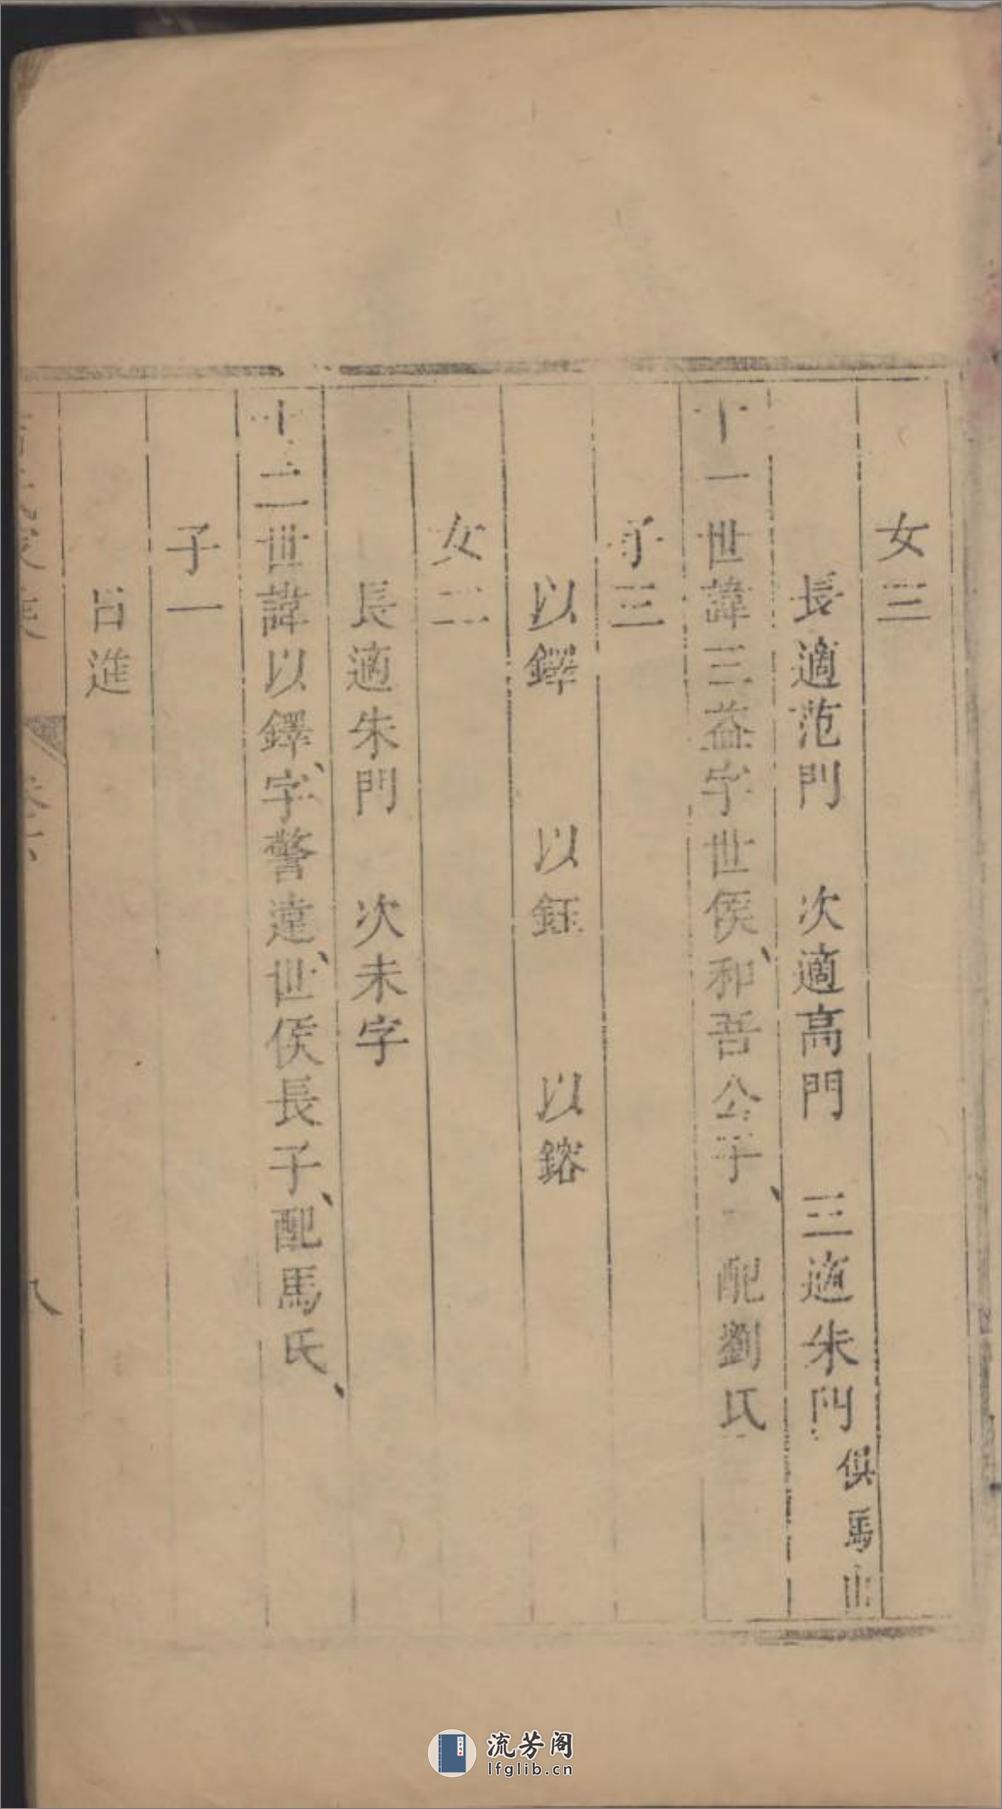 女三
長適范門　次適高門　三適朱門俱馬出
十一世諱三益字世侯和吾公子　配劉氏
子三
以鐸　以鈺　以鎔
女二
長適朱門　次未字
十二世諱以鐸字警違世侯長子配馬氏
子一
進
卷
八
流芳阁
lfglib.cn